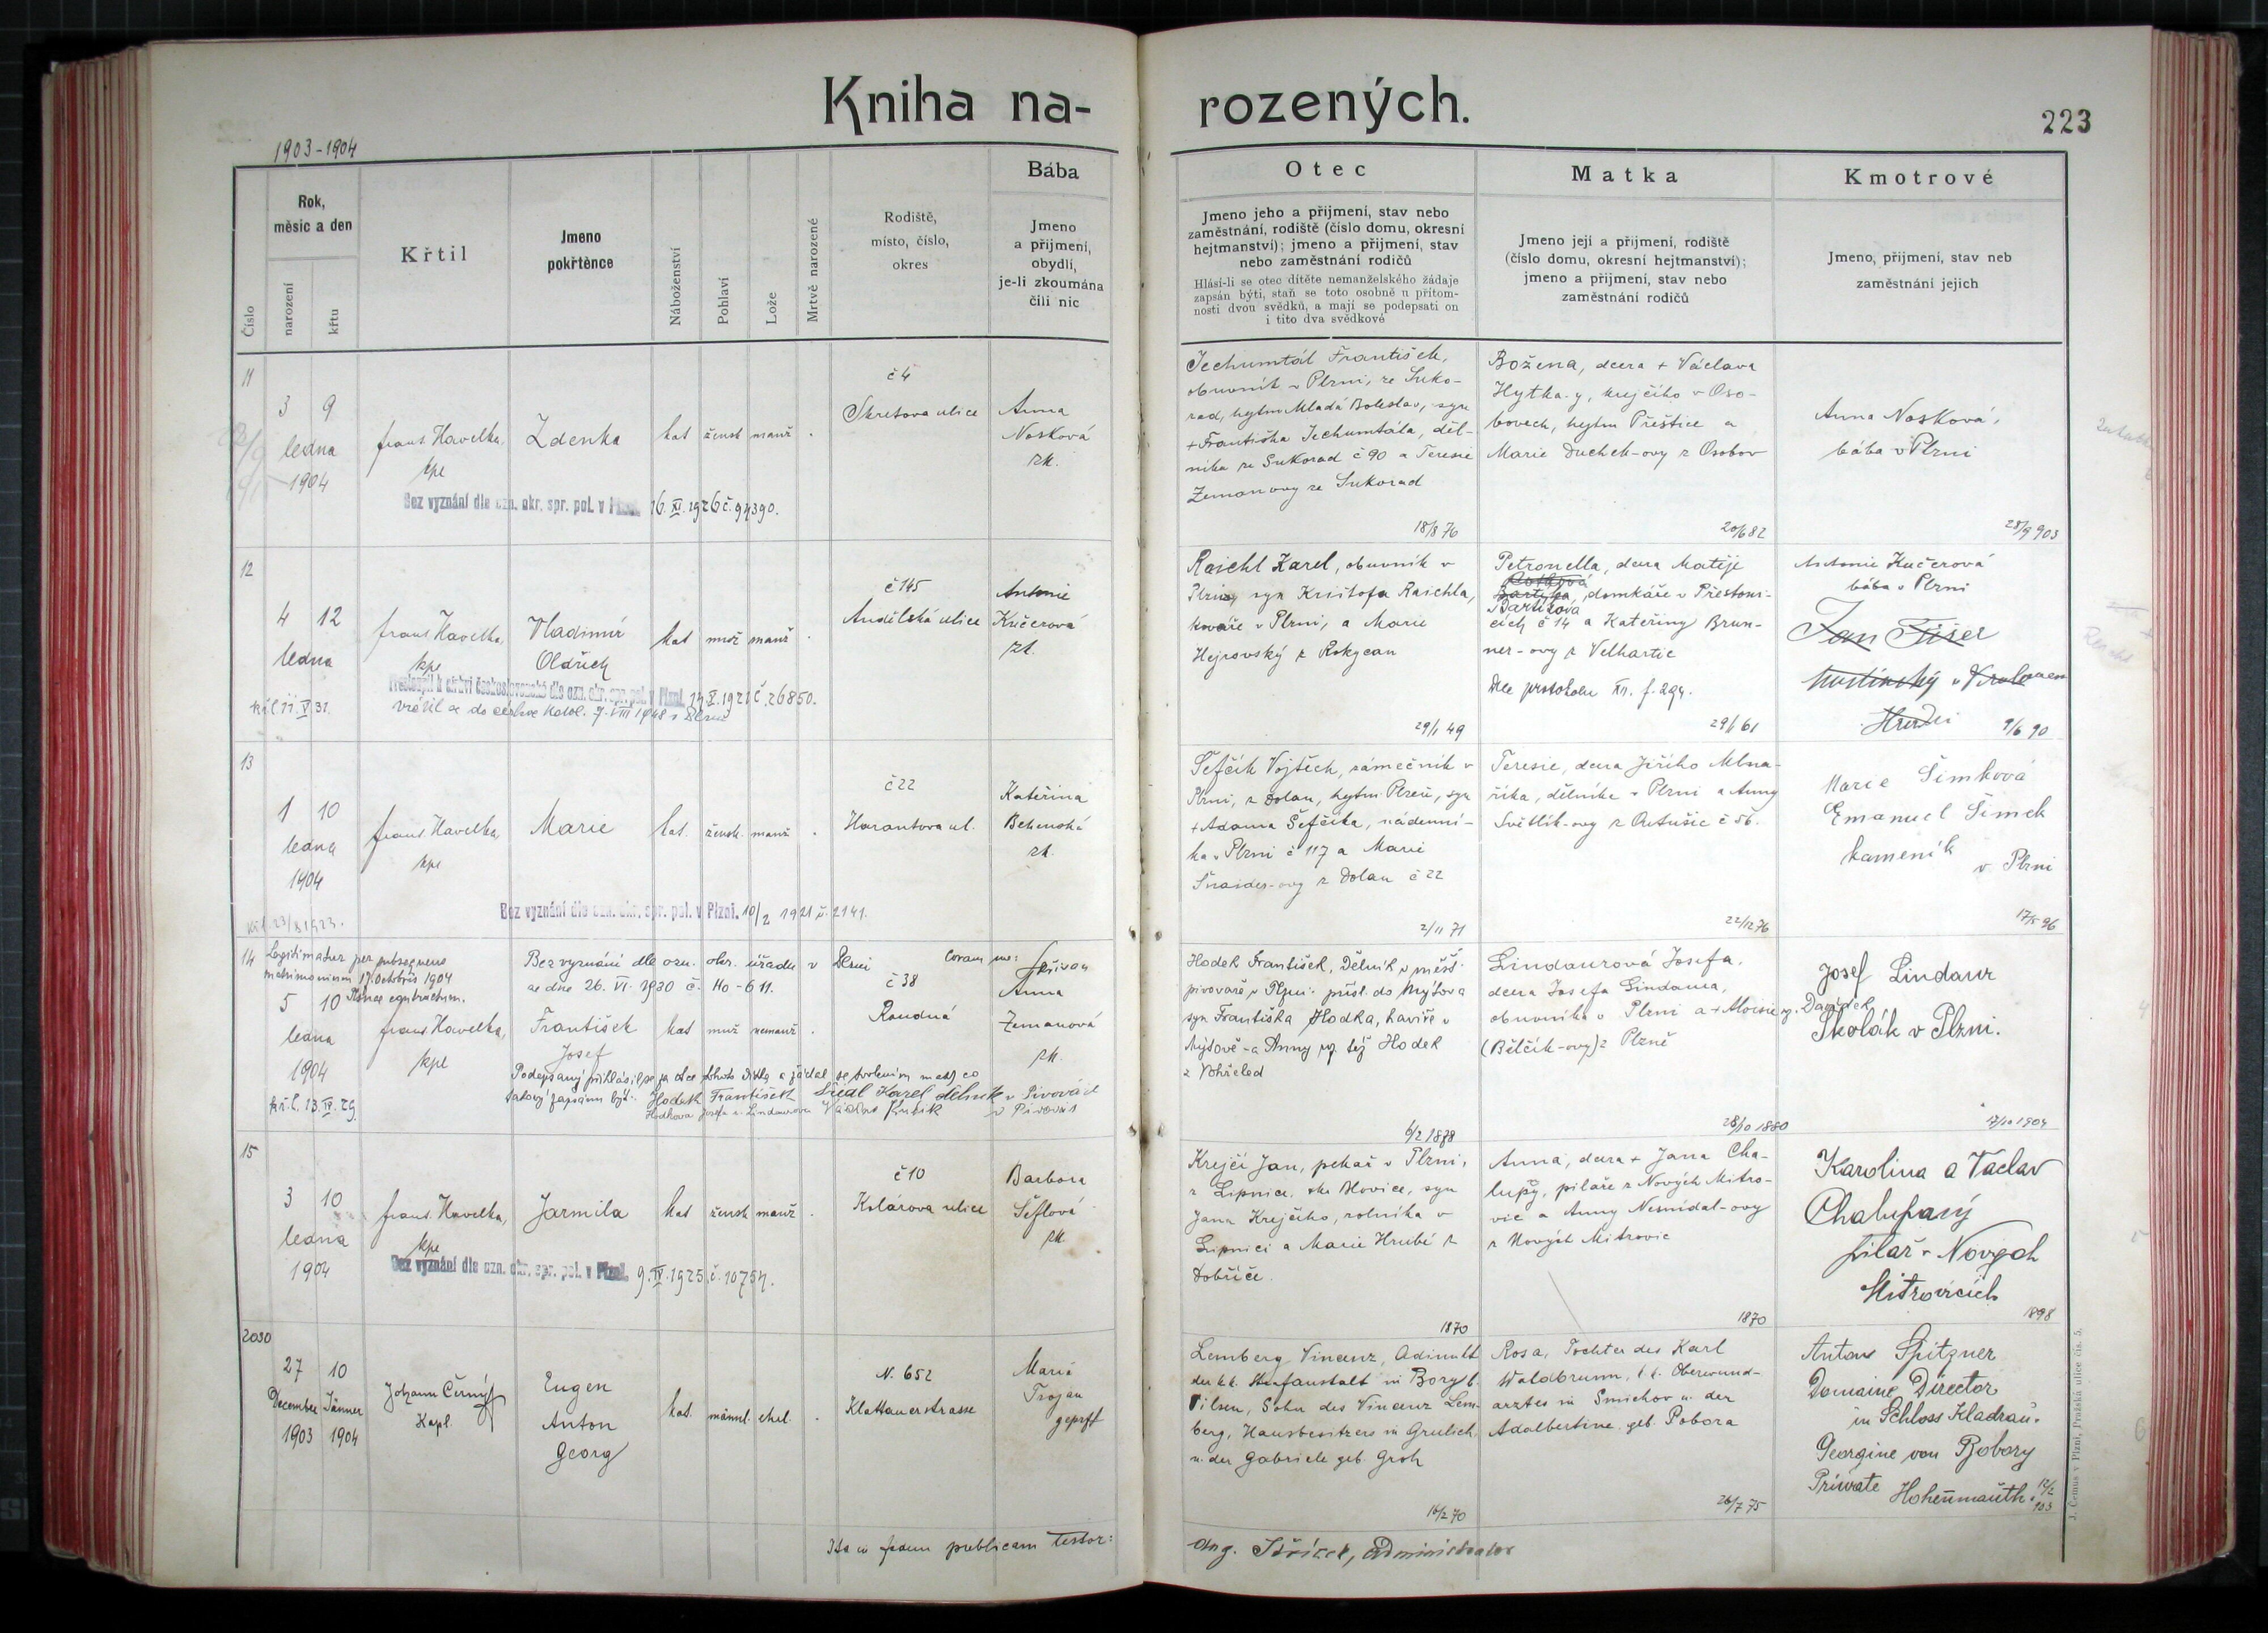 Kniha na-
rozených.
223
1903-1904
Číslo
Rok,
měsíc a den
narození
křtu
Křtil
Jmeno
pokřtěnce
Náboženství
Pohlaví
Lože
Mrtvě narozené
Rodiště,
místo, číslo,
okres
Bába
Jmeno
a přijmení,
obydlí,
je-li zkoumána
čili nic
Otec
Jmeno jeho a přijmení, stav nebo
zaměstnání, rodiště (číslo domu, okresní
hejtmanství); jmeno a přijmení, stav
nebo zaměstnání rodičů
Hlásí-li se otec dítěte nemanželského žádaje
zapsán býti, staň se toto osobně u přítom-
nosti dvou svědků, a mají se podepsati on
i tito dva svědkové
Matka
Jmeno její a přijmení, rodiště
(číslo domu, okresní hejtmanství);
jmeno a přijmení, stav nebo
zaměstnání rodičů
Kmotrové
Jmeno, přijmení, stav neb
zaměstnání jejich
11
3 9
ledna
1904
frant. Havelka,
kpl
Zdenka
kat žensk manž
č 4
Skretova ulice
Anna
Nosková
zk.
Bez vyznání dle ozn. okr. spr. pol. v Plzni 16. XI. 1926 č. 94390.
Jechumtál František,
obuvník v Plzni, ze Suko-
rad, hejtm Mladá Boleslav, syn
+ Františka Jechumtála, děl-
níka ze Sukorad č 90 a Teresie
Zemanovy ze Sukorad
18/8 76
Božena, dcera + Václava
Hytka-y, krejčího v Oso-
bovech, hejtm Přeštice a
Marie Duchek-ovy z Osobov
20/6 82
Anna Nosková,
bába v Plzni
28/9 903
12
4 12
ledna
frant Havelka,
kpl
Vladimír
Oldřich
kat muž manž
č 145
Andělská ulice
Antonie
Kučerová
zk.
Přestoupil k církvi československé dle ozn. okr. spr. pol. v Plzni. 14. X. 1921 č. 26850.
Vrátil se do církve katol. 7. VIII 1948 v Plzni
Raichl Karel, obuvník v
Plzni, syn Krištofa Raichla,
kováře v Plzni, a Marie
Hejrovský z Rokycan
29/1 49
Petronella, dcera Matěje
Bartizova
domkáře v Přestani-
cích č 14 a Kateřiny Brun-
ner-ovy z Velhartic
Dle protokolu XV. f. 294.
29/1 61
Antonie Kučerová
bába v Plzni
Jan Fišer
hostinský v Kralovem
Hradci
9/6 90
13
1 10
ledna
1904
frant Havelka,
kpl
Marie
kat. žensk. manž
č 22
Harantova ul.
Kateřina
Behenská
zk.
Bez vyznání dle ozn. okr. spr. pol. v Plzni. 10/2 1921 č. 2141.
Šefčík Vojtěch, zámečník v
Plzni, z Dolan, hejtm. Plzeň, syn
+ Adama Šefčíka, nádenní-
ka v Plzni č 117 a Marie
Šnaider-ovy z Dolan č 22
2/11 71
Teresie, dcera Jiřího Mlna-
říka, dělníka v Plzni a Anny
Světlík-ovy z Outušic č 56.
22/12 76
Marie Šimková
Emanuel Šimek
kameník
v Plzni
17/5 96
14
Legitimatus per subsequens
matrimonium 17. octobris 1904
Plsnae contractum.
5 10
ledna
1904
kř. l. 13. IV. 29.
frant. Havelka,
kpl
Bez vyznání dle ozn. okr. úřadu v Plzni
ze dne 26. VI. 1930 č. 110-611.
František
Josef
kat muž nemanž
č 38
Roudná
Coram me:
Anna
Zemanová
zk.
Podepsaný přihlásil se za otce tohoto dítka a žádal se svolením matky co
takový zapsán být: Hodek František Šidl Karel dělník v Pivováře
Hodkova Josefa r. Lindaurova Václav Kubík v Pivováře
Hodek František, Dělník v měšť.
pivovaře v Plzni přísl. do Mýtova
syn Františka Hodka, havíře v
Mýtově a Anny roz. též Hodek
z Vohřeled
6/2 1878
Lindaurová Josefa,
dcera Josefa Lindaura,
obuvníka v Plzni a + Aloisie r. Davídek
(Bělčík-ovy) z Plzně
28/10 1880
Josef Lindaur
Školák v Plzni.
17/10 1904
15
3 10
ledna
1904
frant. Havelka,
kpl
Jarmila
kat žensk manž
č 10
Kolárova ulice
Barbora
Šeflová
zk
Bez vyznání dle ozn. okr. spr. pol. v Plzni. 9. IV. 1925. č. 10754.
Krejčí Jan, pekař v Plzni,
z Lipnice, okr Blovice, syn
Jana Krejčího, rolníka v
Lipnici a Marie Hrubé z
Dobříče.
1870
Anna, dcera + Jana Cha-
lupy, pilaře z Nových Mitro-
vic a Anny Nesnídal-ovy
z Nových Mitrovic
1870
Karolina a Václav
Chalupný
pilař v Nových
Mitrovicích
1898
2030
27 10
December Jänner
1903 1904
Johann Černý
Kapl.
Eugen
Anton
Georg
kat. männl. ehel.
N. 652
Klattauerstrasse
Maria
Trojan
geprft
Lemberg Vincenz, Adjunkt
der k.k. Strafanstalt in Bory b.
Pilsen, Sohn des Vincenz Lem-
berg, Hausbesitzers in Grulich,
u. der Gabriele geb. Groh
16/2 70
Rosa, Tochter des Karl
Waldbrunn, k.k. Oberwund-
arztes in Smichov u. der
Adalbertine geb. Pobora
26/7 75
Anton Spitzner
Domaine Director
in Schloss Kladrau.
Georgine von Bobory
Private Hohenmauth.
12/2 903
Ita in fidem publicam testor:
Aug. Stříčk, Administrator
J. Černa v Plzni, Pražská ulice čís. 5.